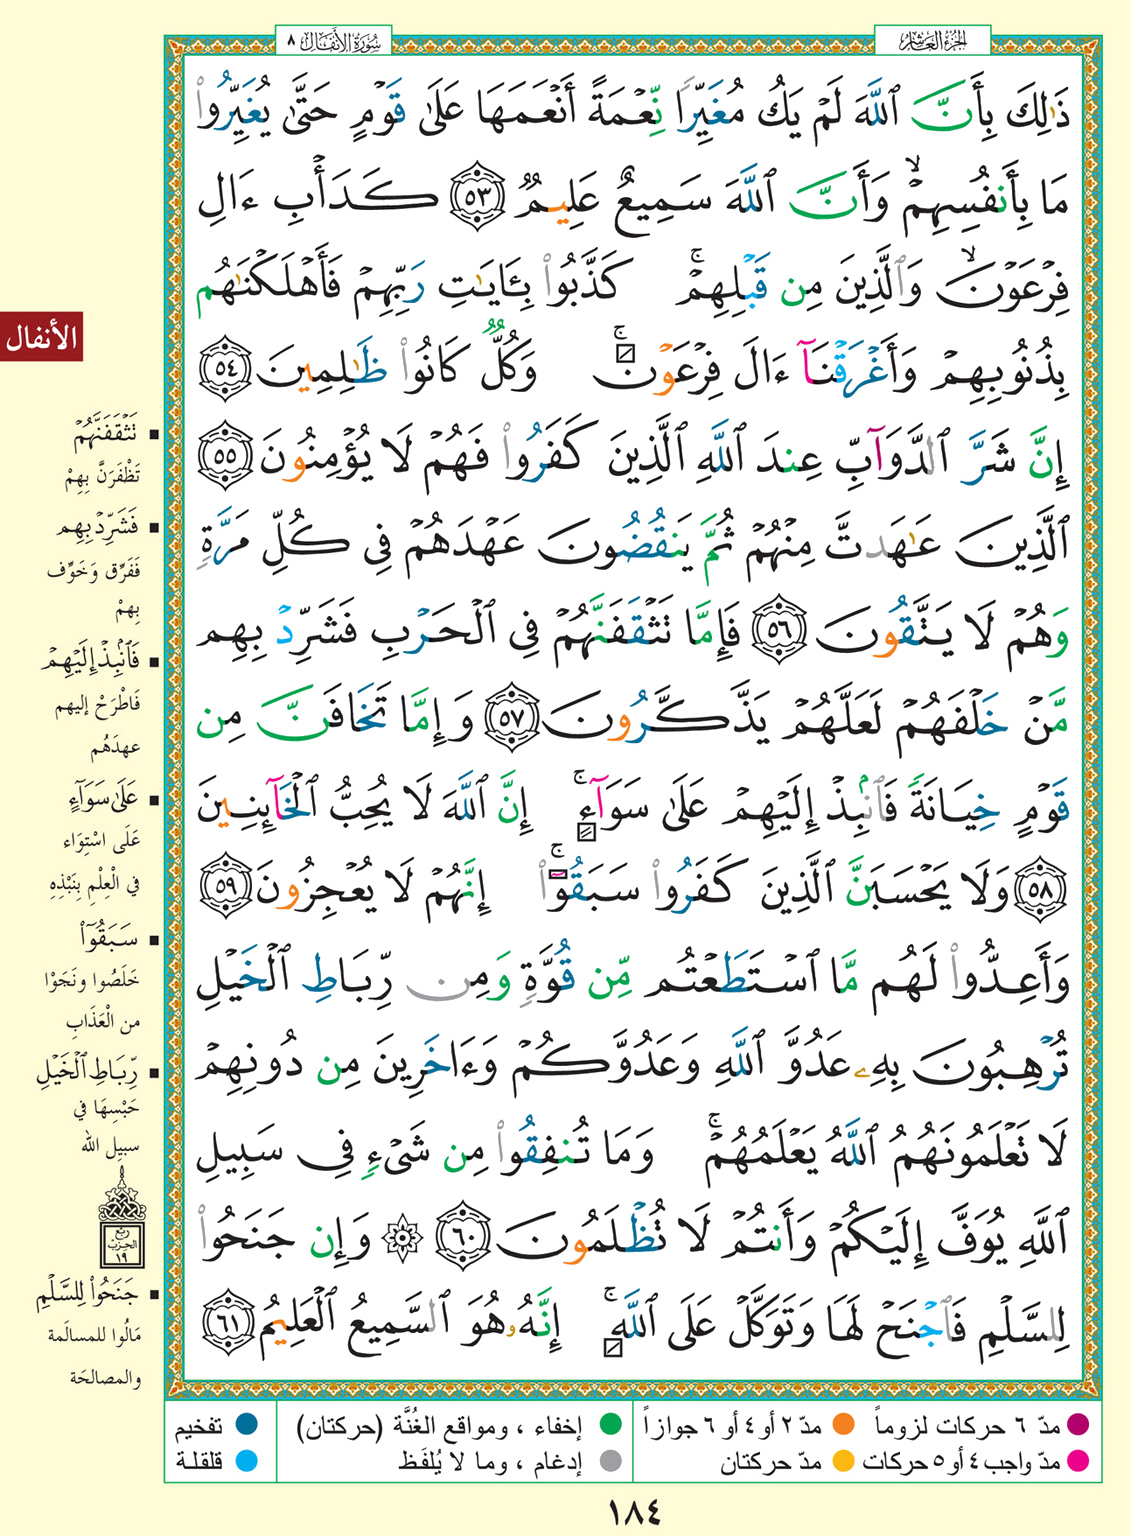 الجزء العاشر
سورة الأنفال ٨
ذَٰلِكَ بِأَنَّ ٱللَّهَ لَمْ يَكُ مُغَيِّرًا نِّعْمَةً أَنْعَمَهَا عَلَىٰ قَوْمٍ حَتَّىٰ يُغَيِّرُوا۟
مَا بِأَنفُسِهِمْ ۙ وَأَنَّ ٱللَّهَ سَمِيعٌ عَلِيمٌ ٥٣ كَدَأْبِ ءَالِ
فِرْعَوْنَ ۙ وَٱلَّذِينَ مِن قَبْلِهِمْ ۚ كَذَّبُوا۟ بِـَٔايَـٰتِ رَبِّهِمْ فَأَهْلَكْنَـٰهُم
بِذُنُوبِهِمْ وَأَغْرَقْنَآ ءَالَ فِرْعَوْنَ ۚ وَكُلٌّ كَانُوا۟ ظَـٰلِمِينَ ٥٤
إِنَّ شَرَّ ٱلدَّوَآبِّ عِندَ ٱللَّهِ ٱلَّذِينَ كَفَرُوا۟ فَهُمْ لَا يُؤْمِنُونَ ٥٥
ٱلَّذِينَ عَـٰهَدتَّ مِنْهُمْ ثُمَّ يَنقُضُونَ عَهْدَهُمْ فِى كُلِّ مَرَّةٍ
وَهُمْ لَا يَتَّقُونَ ٥٦ فَإِمَّا تَثْقَفَنَّهُمْ فِى ٱلْحَرْبِ فَشَرِّدْ بِهِم
مَّنْ خَلْفَهُمْ لَعَلَّهُمْ يَذَّكَّرُونَ ٥٧ وَإِمَّا تَخَافَنَّ مِن
قَوْمٍ خِيَانَةً فَٱنۢبِذْ إِلَيْهِمْ عَلَىٰ سَوَآءٍ ۚ إِنَّ ٱللَّهَ لَا يُحِبُّ ٱلْخَآئِنِينَ
٥٨ وَلَا يَحْسَبَنَّ ٱلَّذِينَ كَفَرُوا۟ سَبَقُوٓا۟ ۚ إِنَّهُمْ لَا يُعْجِزُونَ ٥٩
وَأَعِدُّوا۟ لَهُم مَّا ٱسْتَطَعْتُم مِّن قُوَّةٍ وَمِن رِّبَاطِ ٱلْخَيْلِ
تُرْهِبُونَ بِهِۦ عَدُوَّ ٱللَّهِ وَعَدُوَّكُمْ وَءَاخَرِينَ مِن دُونِهِمْ
لَا تَعْلَمُونَهُمُ ٱللَّهُ يَعْلَمُهُمْ ۚ وَمَا تُنفِقُوا۟ مِن شَىْءٍ فِى سَبِيلِ
ٱللَّهِ يُوَفَّ إِلَيْكُمْ وَأَنتُمْ لَا تُظْلَمُونَ ٦٠ ۞ وَإِن جَنَحُوا۟
لِلسَّلْمِ فَٱجْنَحْ لَهَا وَتَوَكَّلْ عَلَى ٱللَّهِ ۚ إِنَّهُۥ هُوَ ٱلسَّمِيعُ ٱلْعَلِيمُ ٦١
الأنفال
■ تَثْقَفَنَّهُمْ
تَظْفَرَنَّ بِهِمْ
■ فَشَرِّدْ بِهِم
فَفَرِّق وَخَوِّف
بِهِمْ
■ فَٱنۢبِذْ إِلَيْهِمْ
فَاطْرَحْ إليهم
عهدَهُم
■ عَلَىٰ سَوَآءٍ
عَلَى اسْتِوَاء
في الْعِلْمِ بِنَبْذِهِ
■ سَبَقُوٓا۟
خَلَصُوا ونَجَوْا
من الْعَذَابِ
■ رِّبَاطِ ٱلْخَيْلِ
حَبْسِهَا في
سبيل الله
ربع
الحزب
١٩
■ جَنَحُوا۟ لِلسَّلْمِ
مَالُوا للمسالَمة
والمصالحَة
مدّ ٦ حركات لزوماً
مدّ ٢ أو ٤ أو ٦ جوازاً
إخفاء ، ومواقع الغُنَّة (حركتان)
تفخيم
مدّ واجب ٤ أو ٥ حركات
مدّ حركتان
إدغام ، وما لا يُلفَظ
قلقلة
١٨٤